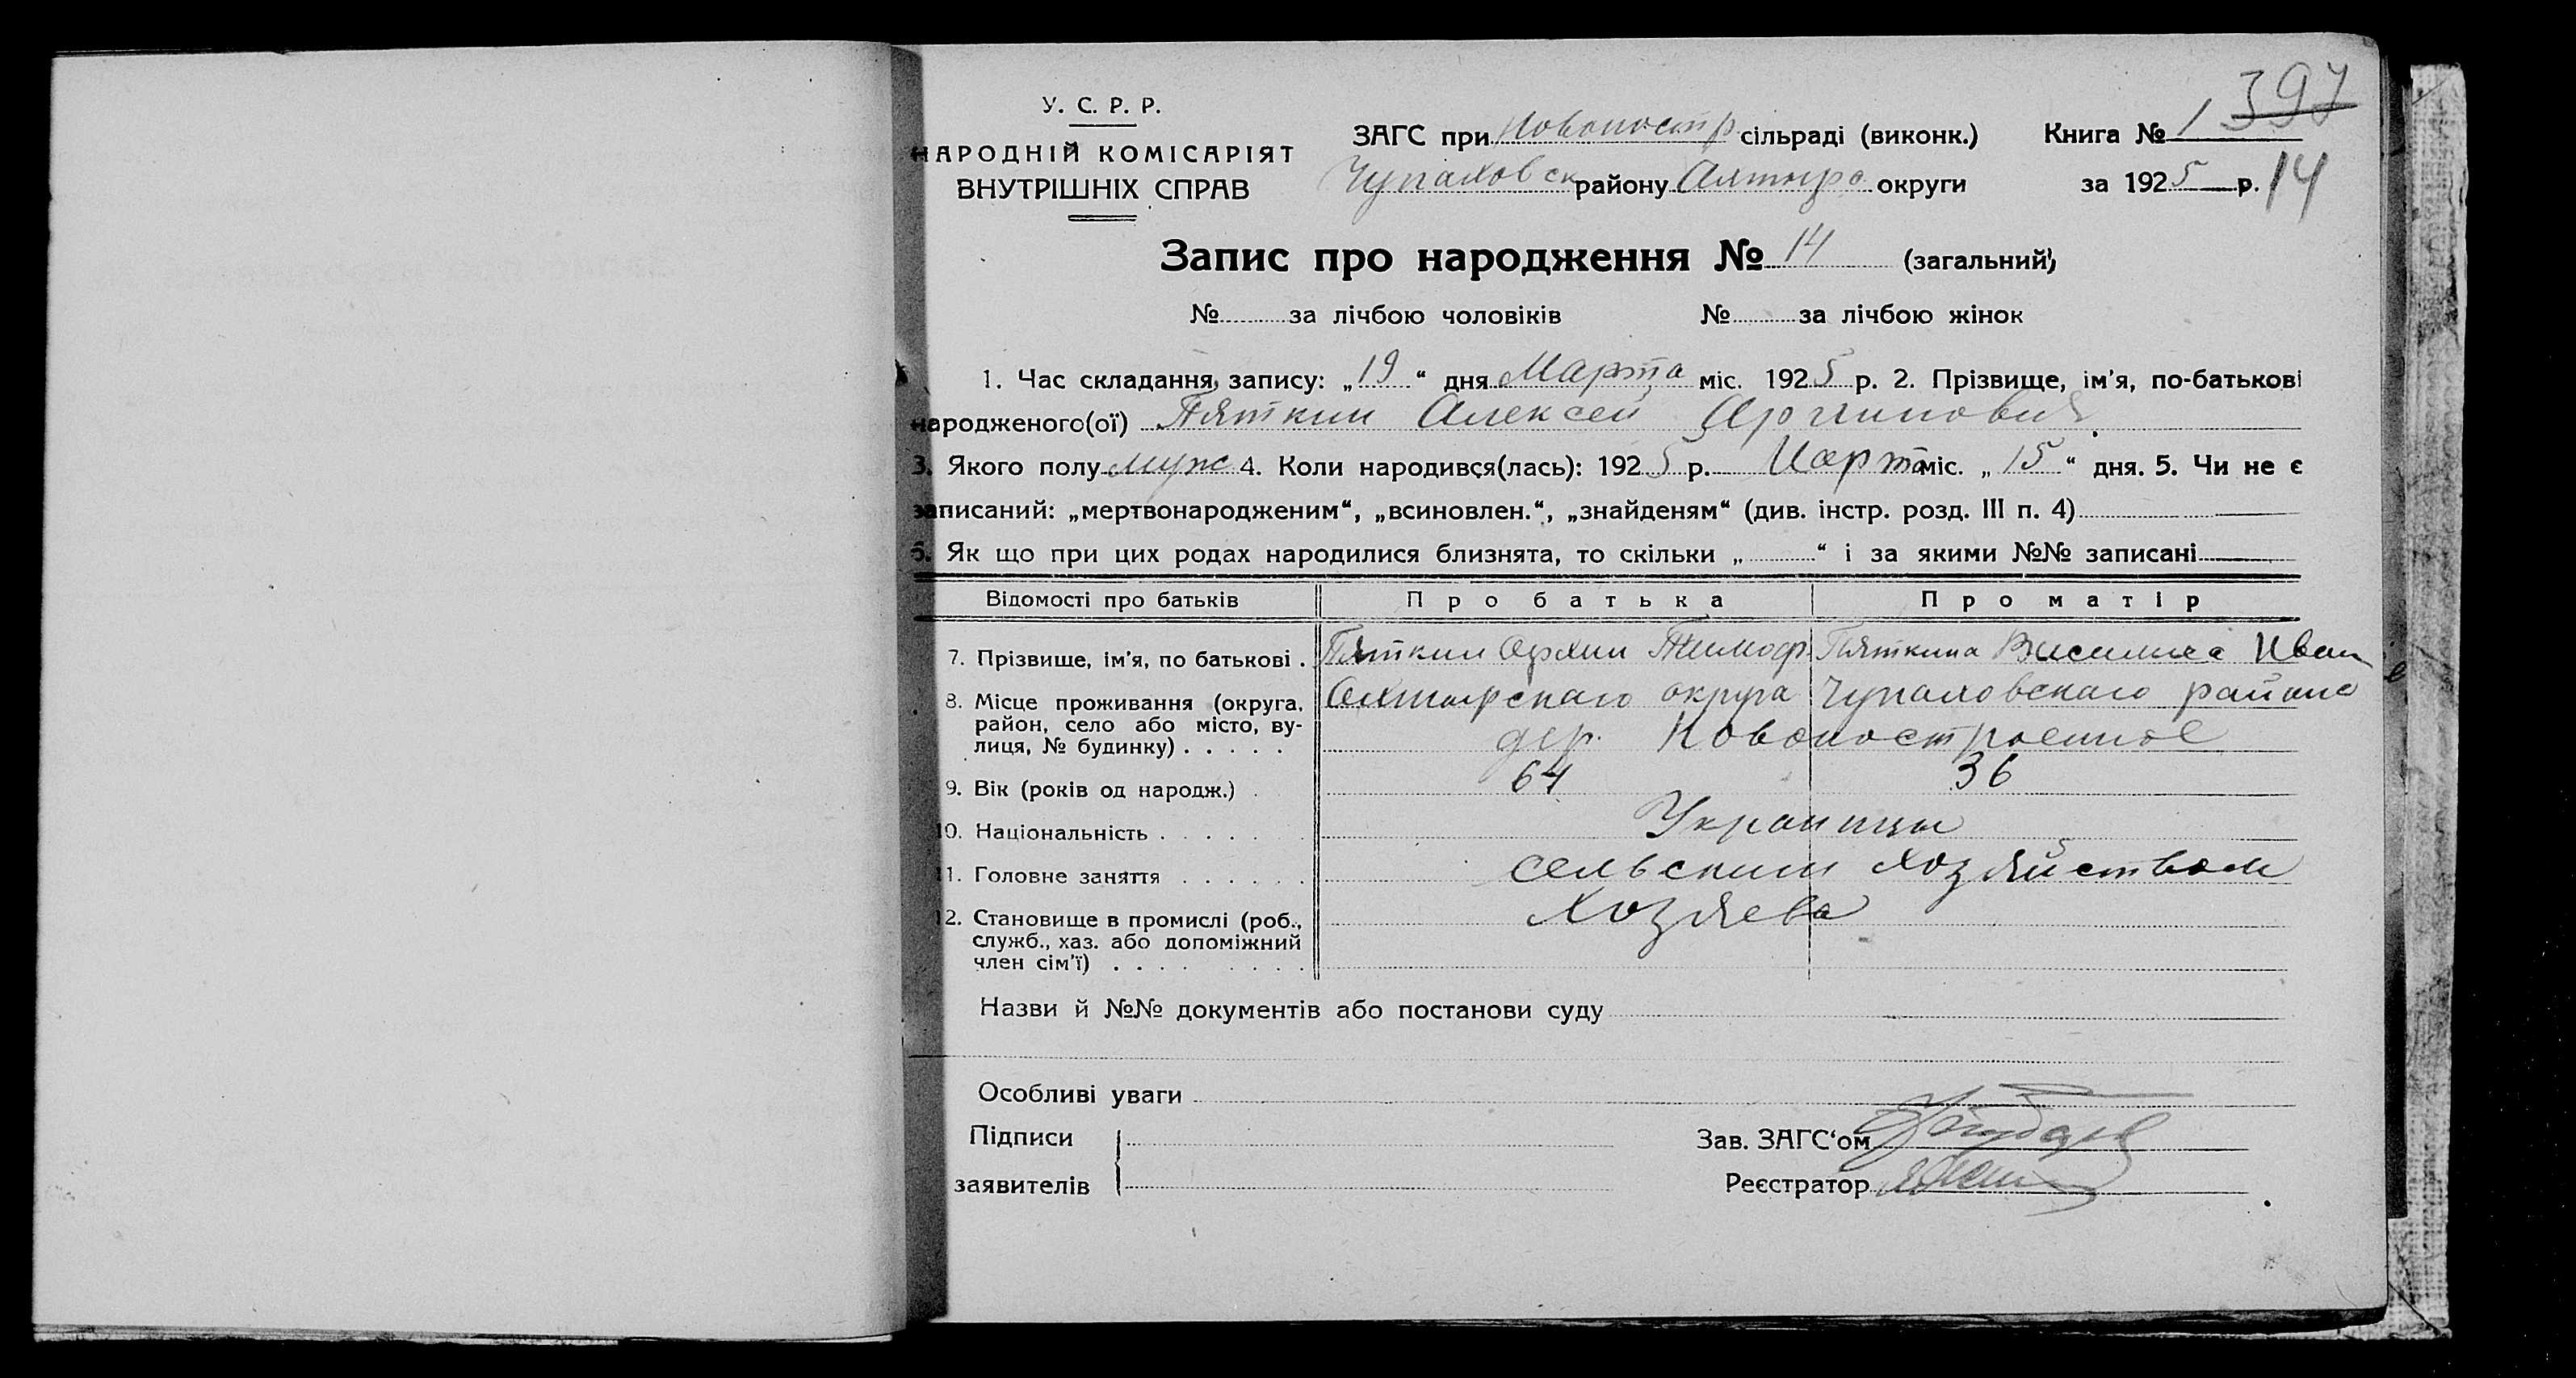 397
У. С. Р. Р.
НАРОДНІЙ КОМІСАРІЯТ
ВНУТРІШНІХ СПРАВ
ЗАГС при Новопостр сільраді (виконк.) Книга № 1
Чупаховск району Ахтыр округи за 1925 р. 14
Запис про народження № 14 (загальний)
№ за лічбою чоловіків № за лічбою жінок
1. Час складання запису: „19“ дня Марта міс. 1925 р. 2. Прізвище, ім'я, по-батькові
народженого(ої) Пяткин Алексей
3. Якого полу муж 4. Коли народився(лась): 1925 р. Марта міс. „15“ дня. 5. Чи не є
записаний: „мертвонародженим“, „всиновлен.“, „знайденям“ (див. інстр. розд. III п. 4)
6. Як що при цих родах народилися близнята, то скільки „ “ і за якими №№ записані
Відомості про батьків Про батька Про матір
7. Прізвище, ім'я, по батькові . Пяткин Архип Тимоф. Пяткина Иван
8. Місце проживання (округа, Ахтырскаго округа Чупаховскаго района
район, село або місто, ву-
лиця, № будинку) . . . . . дер. Новопостроенное
9. Вік (років од народж.) . 64 36
10. Національність . . . . . Украинцы
11. Головне заняття . . . . . . сельским хозяйством
12. Становище в промислі (роб., Хозяева
служб., хаз. або допоміжний
член сім'ї) . . . . . . . .
Назви й №№ документів або постанови суду
Особливі уваги
Підписи
заявителів
Зав. ЗАГС‘ом
Реєстратор